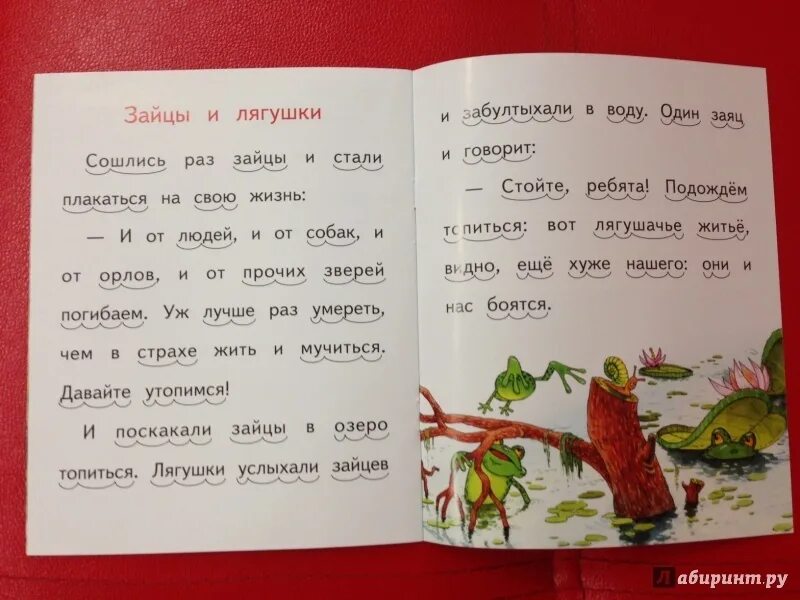 Зайцы и лягушки
Сошлись раз зайцы и стали
плакаться на свою жизнь:
— И от людей, и от собак, и
от орлов, и от прочих зверей
погибаем. Уж лучше раз умереть,
чем в страхе жить и мучиться.
Давайте утопимся!
И поскакали зайцы в озеро
топиться. Лягушки услыхали зайцев
и забултыхали в воду. Один заяц
и говорит:
— Стойте, ребята! Подождём
топиться: вот лягушачье житьё,
видно, ещё хуже нашего: они и
нас боятся.
Лабиринт.ру